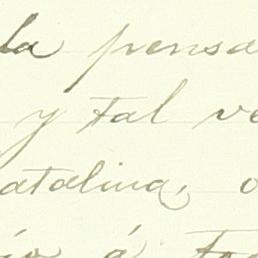 la pensa
y tal ve
atalina, o
io á to